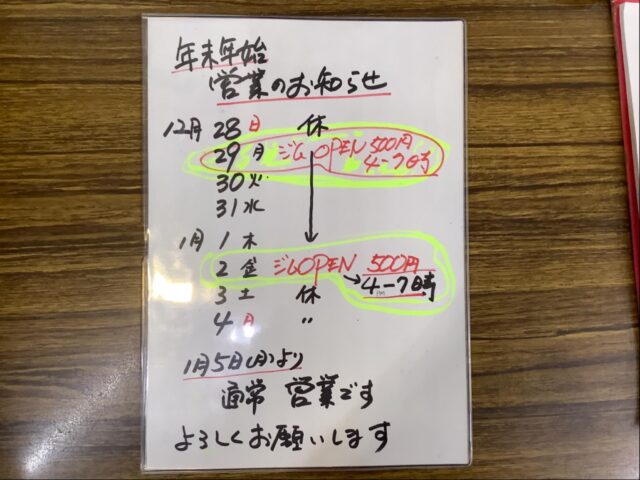 年末年始
営業のお知らせ
12月 28 日 休
29 月 ジム OPEN 500円 4-7時
30 火
31 水
1月 1 木
2 金 ジムOPEN 500円
→ 4-7時
PM
3 土 休
4 月 〃
1月5日(月)より
通常 営業です
よろしくお願いします